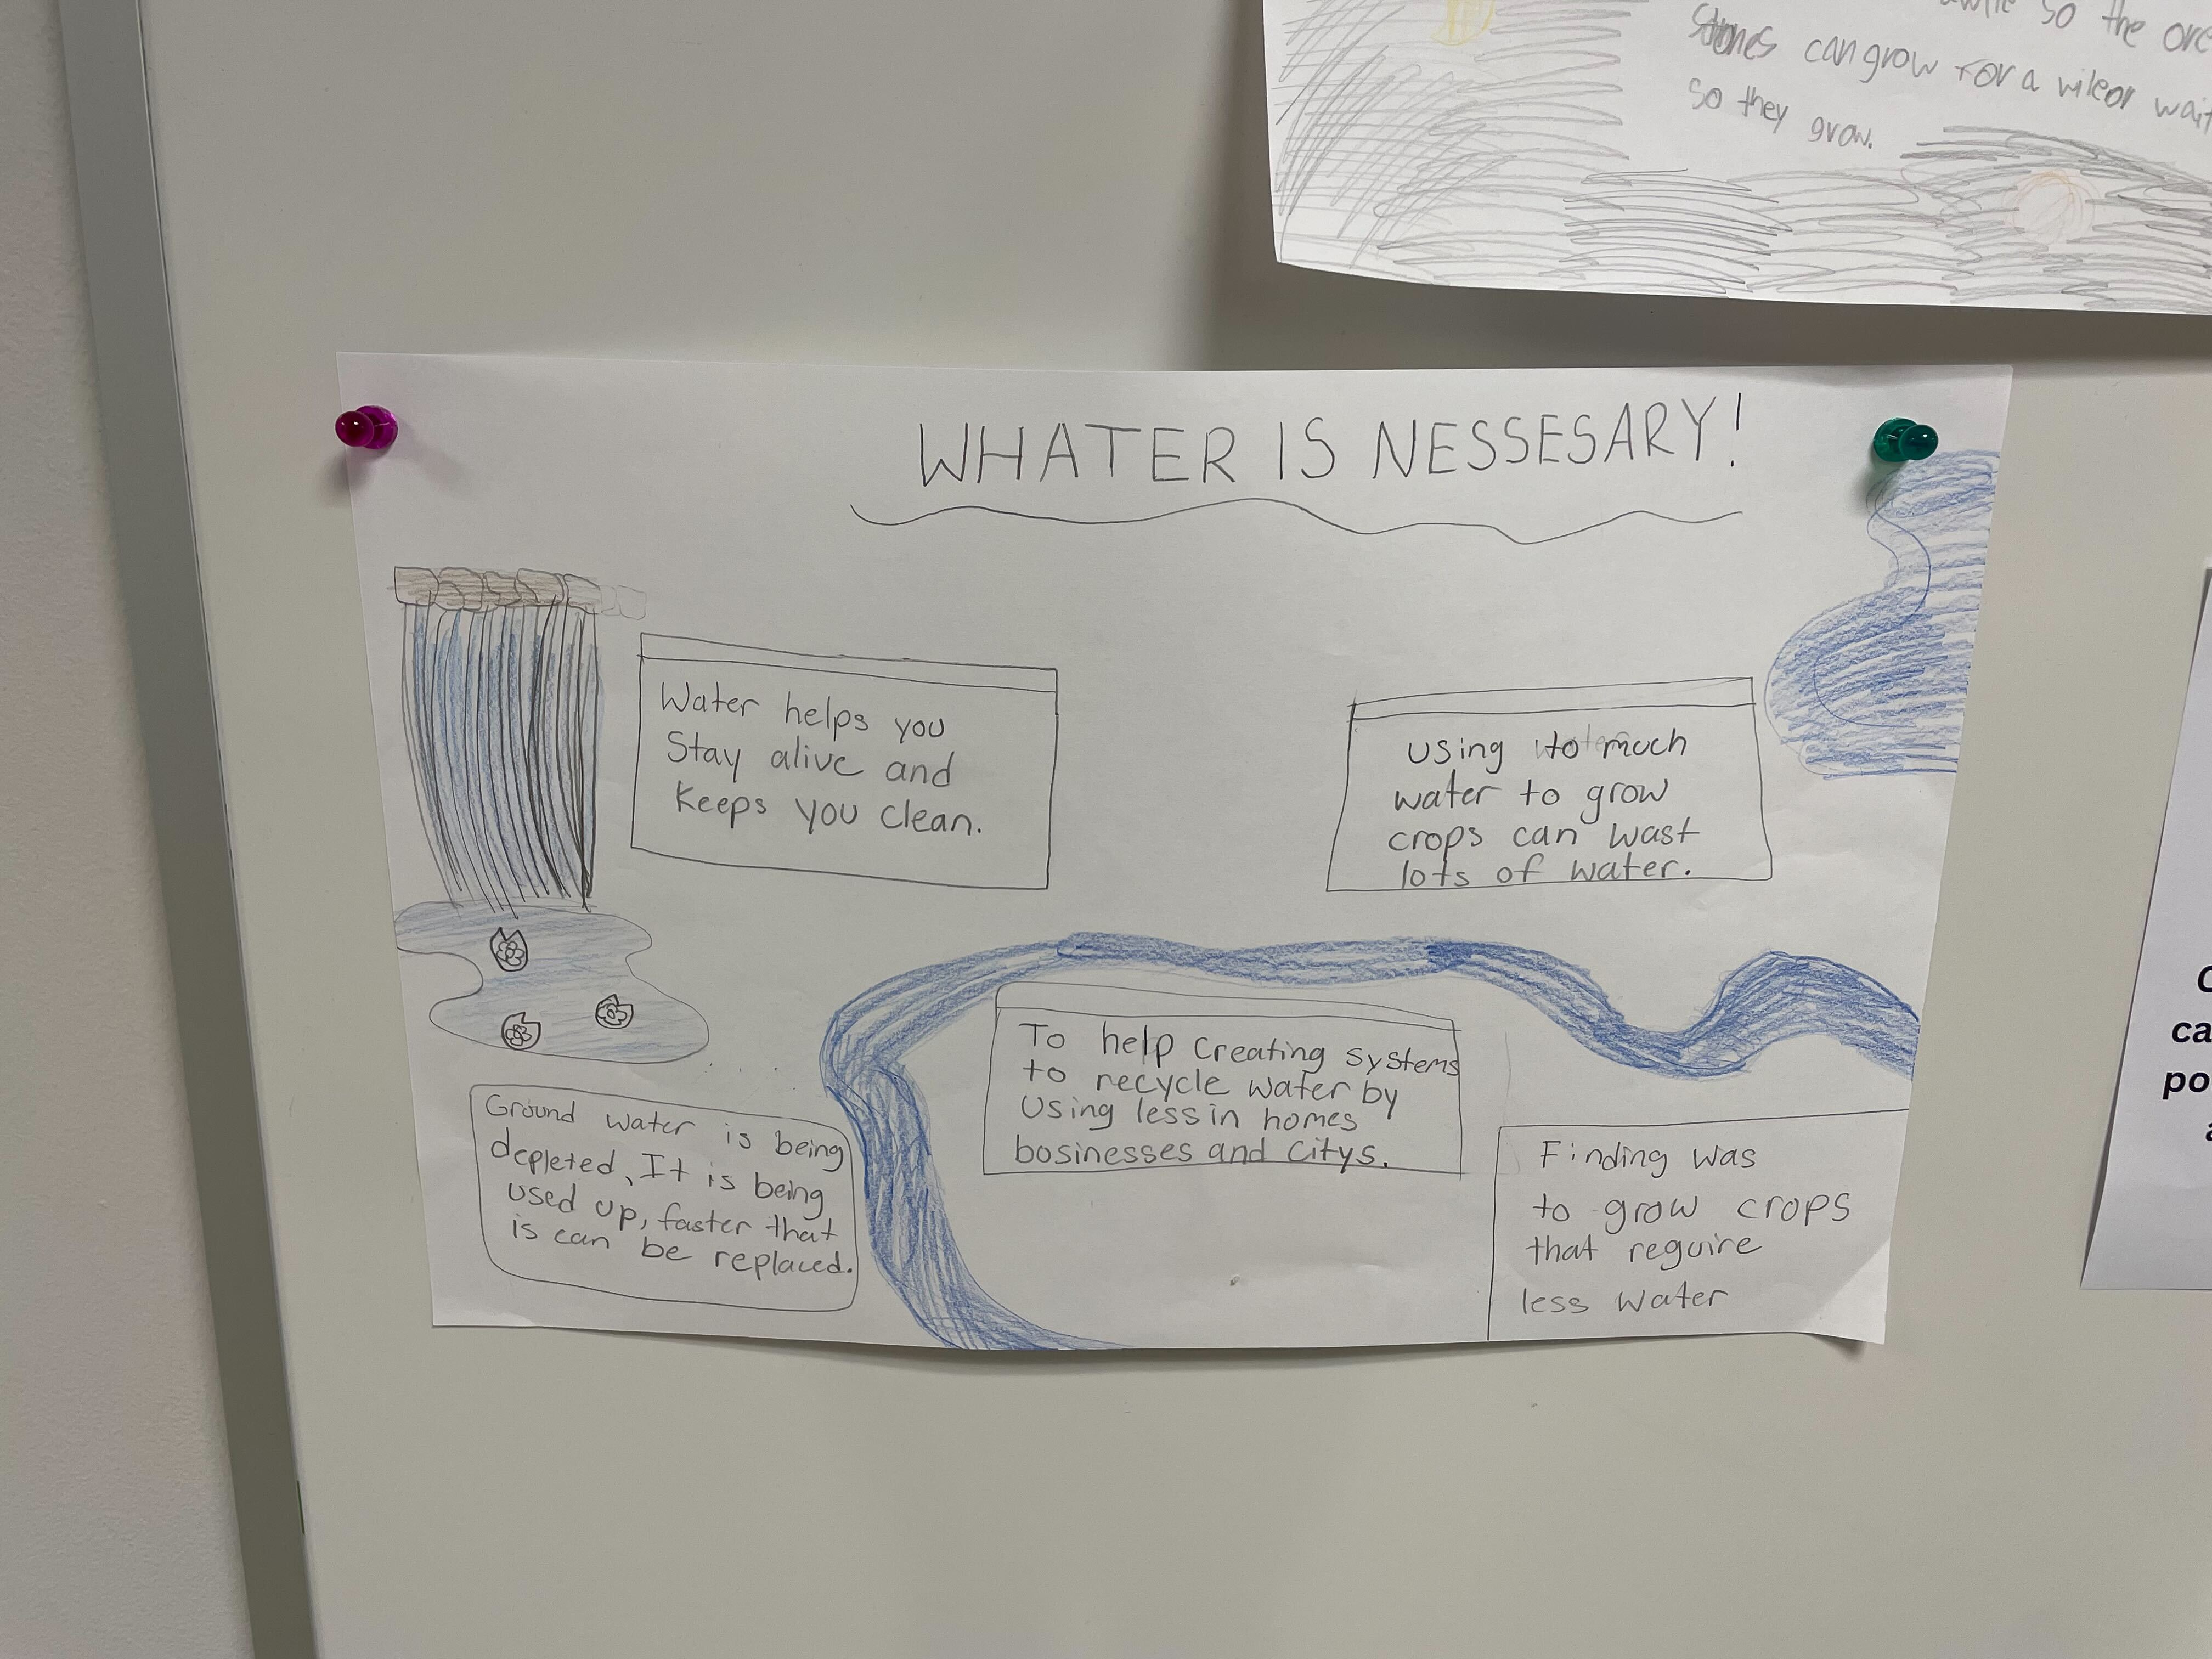 so the
stones can grow for a
so they grow.
WHATER IS NESSESARY!
Water helps you
Stay alive and
Keeps you clean.
using to much
water to grow
crops can wast
lots of water.
To help creating systems
to recycle water by
Using less in homes
bosinesses and Citys.
Ground water is being
depleted, It is being
used up, faster that
is can be replaced.
Finding was
to grow crops
that reguire
less water
ca
po